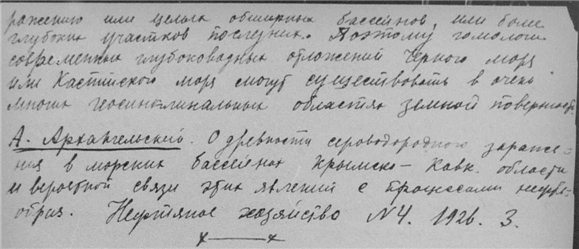 ражению или целых обширных бассейнов, или более
глубоких участков последних. Поэтому гомологи
современных глубоководных отложений Черного моря
или Каспийского моря могут существовать в очень
многих геосинклинальных областях земной поверхност.
А. Архангельский. О древности сероводородного зараже-
ния в морских бассейнах Крымско-Кавк. области
и вероятной связи этих явлений с процессами нефте-
образ. Нефтяное хозяйство N4. 1926. 3.